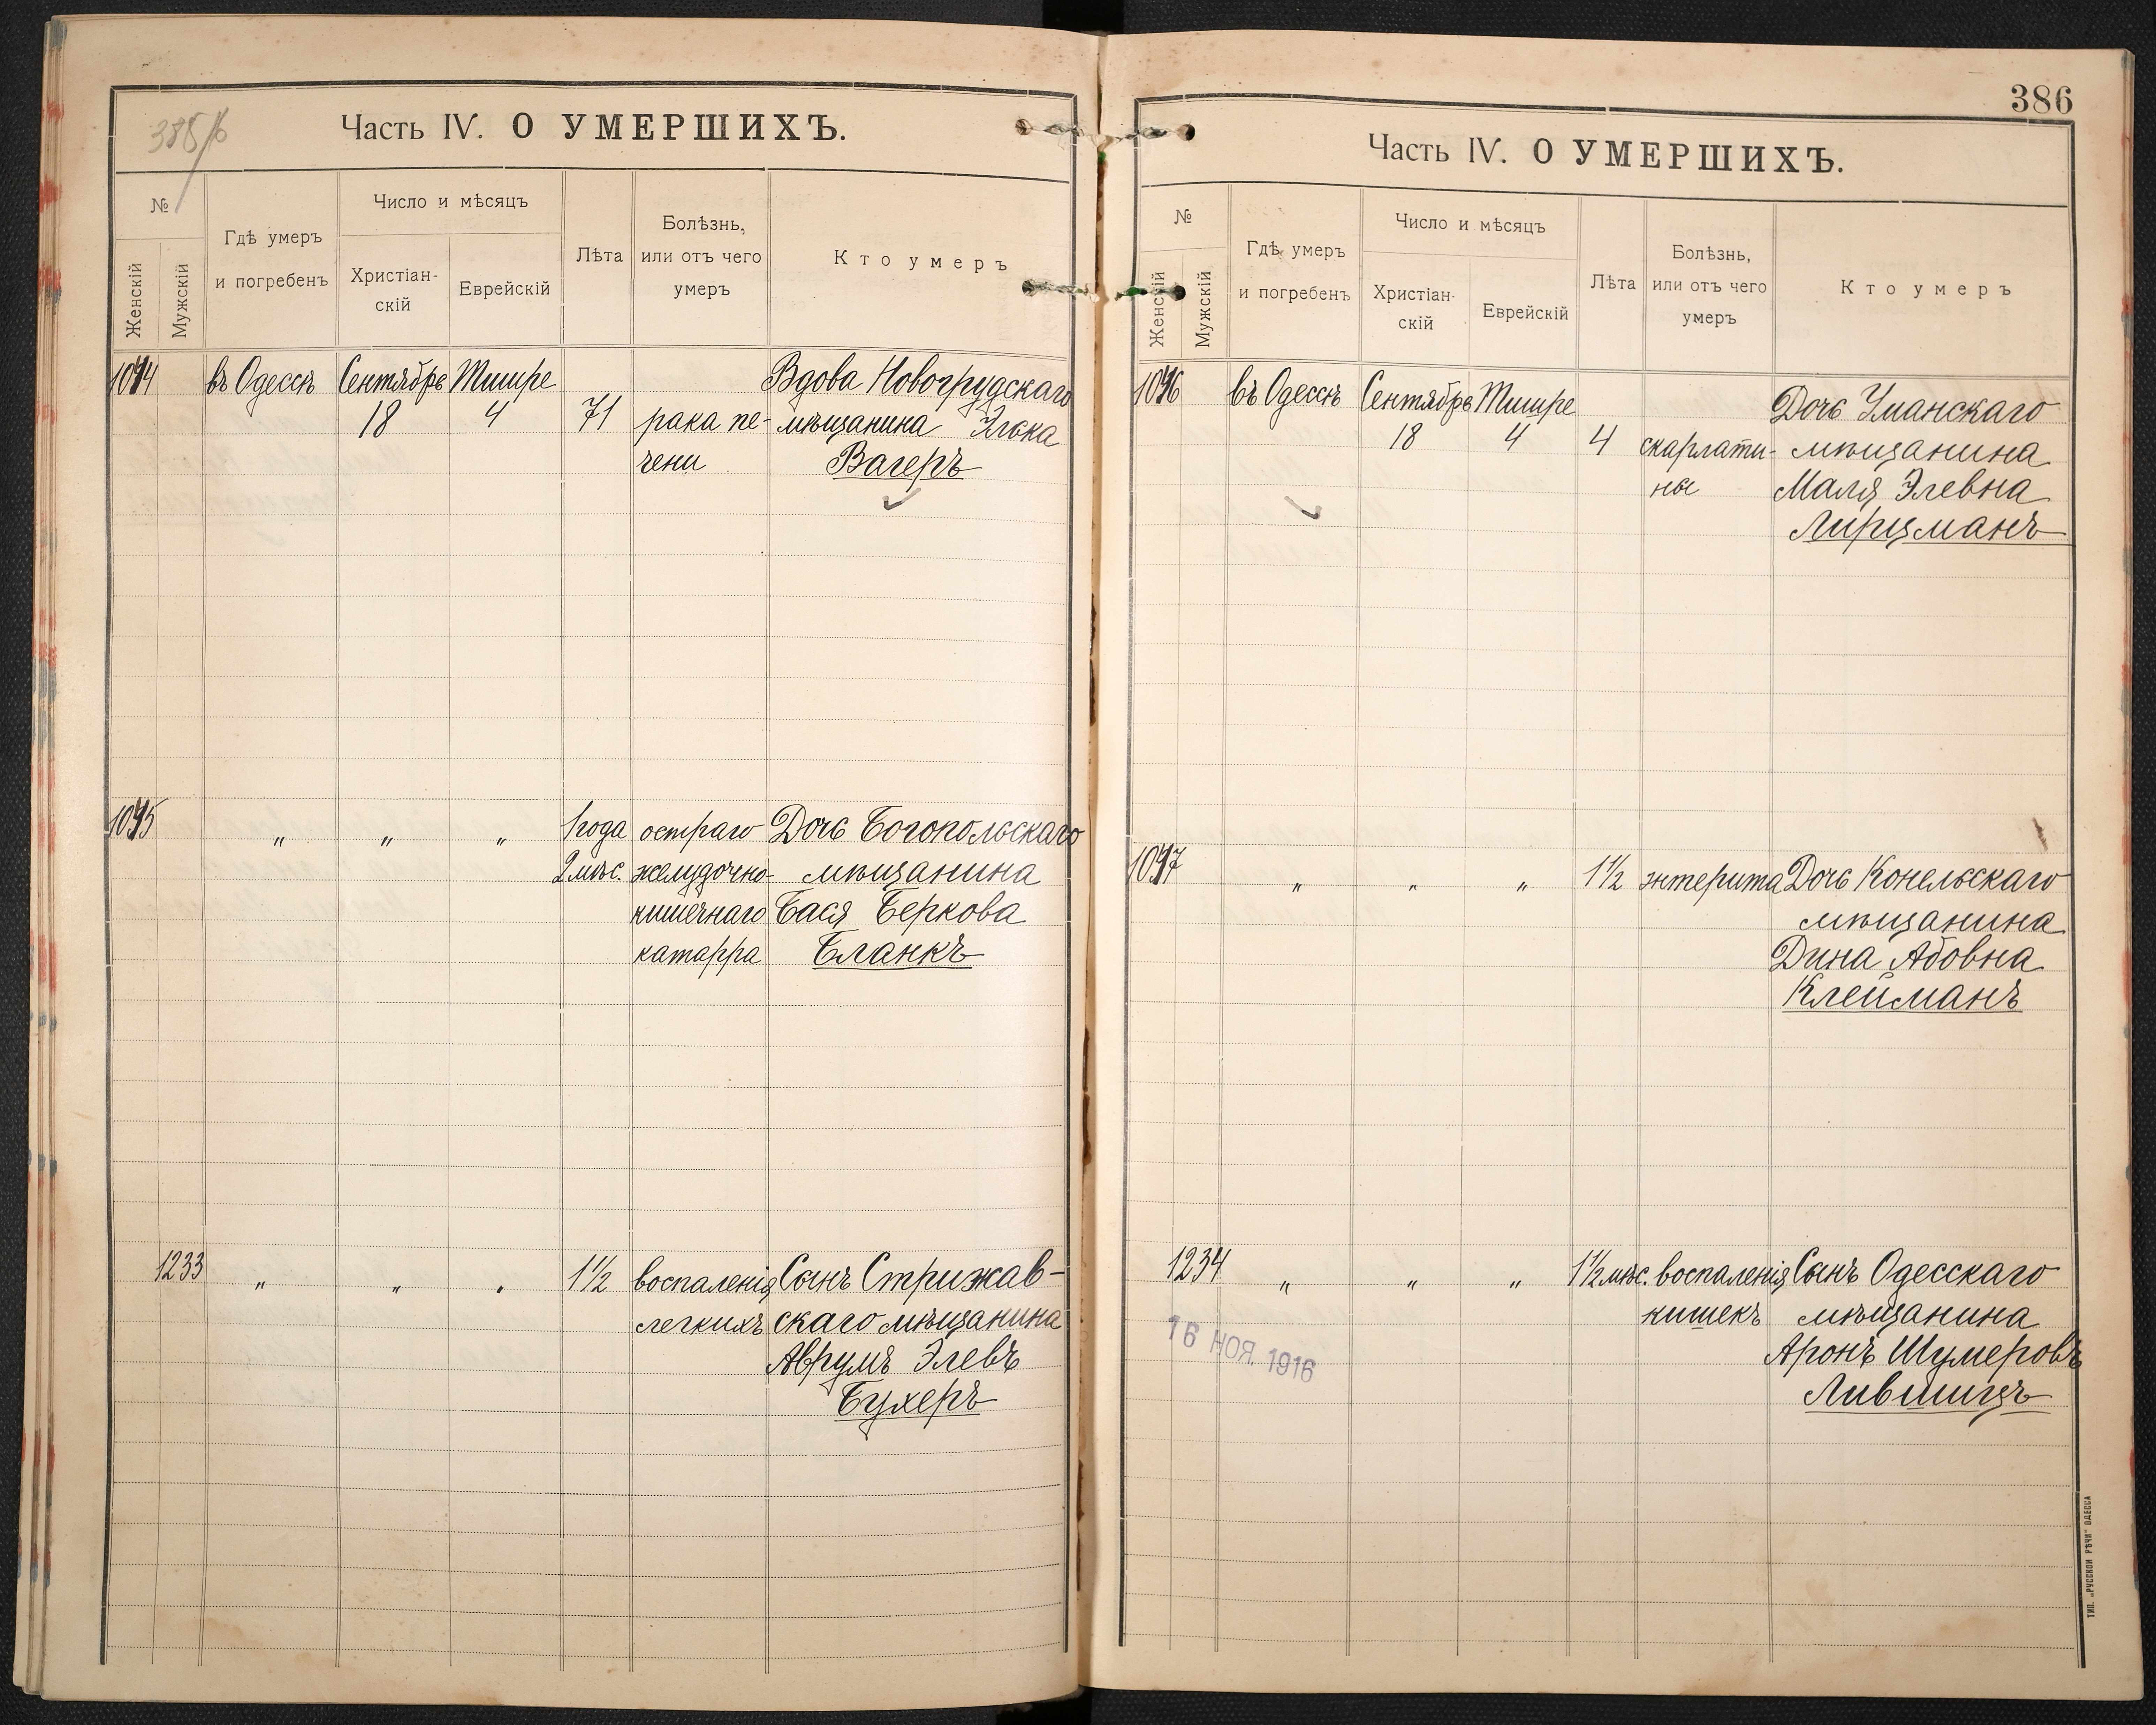 385/б
Часть IV. О УМЕРШИХЪ.
№
Женскій
Мужскій
Гдѣ умеръ
и погребенъ
Число и мѣсяцъ
Христіан-
скій
Еврейскій
Лѣта
Болѣзнь,
или отъ чего
умеръ
Кто умеръ
въ Одессѣ Сентябрь Тишре Вдова Новогрудскаго
18 4 71 рака пе- мѣщанина Элька
чени Вагеръ
" " " 1 года остраго Дочь Богопольскаго
2 мѣс. желудочно- мѣщанина
кишечнаго Бася Беркова
катарра Бланкъ
1233 " " " 1½ воспаленія Сынъ Стрижав-
легкихъ скаго мѣщанина
Аврумъ Элевъ
Бухеръ
386
Часть IV. О УМЕРШИХЪ.
№
Женскій
Мужскій
Гдѣ умеръ
и погребенъ
Число и мѣсяцъ
Христіан-
скій
Еврейскій
Лѣта
Болѣзнь,
или отъ чего
умеръ
Кто умеръ
въ Одессѣ Сентябрь Тишре Дочь Уманскаго
18 4 4 скарлати- мѣщанина
ны Маля Элевна
Лирцманъ
" " " 1½ энтерита Дочь Конельскаго
мѣщанина
Дина Абовна
Клейманъ
1234 " " " 1½ мѣс. воспаленія Сынъ Одесскаго
кишекъ мѣщанина
Аронъ Шумеровъ
Лившицъ
16 НОЯ. 1916
ТИП. „РУССКОЙ РѢЧИ" ОДЕССА